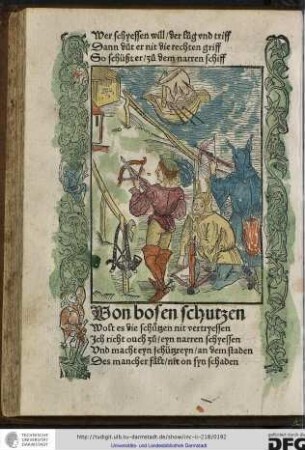 Wer schyessen will/der lůg vnd triff
Dann důt er nit die rechten griff
So schüßt er/zů dem narren schiff
Von bosen schutzen
Wolt es die schützen nit vertryessen
Ich richt ouch zů/eyn narren schyessen
Vnd macht eyn schützreyn/an dem staden
Des mancher fält/nit on syn schaden
TECHNISCHE UNIVERSITÄT DARMSTADT
http://tudigit.ulb.tu-darmstadt.de/show/inc-ii-218/0192
Universitäts- und Landesbibliothek Darmstadt
gefördert durch die
DFG